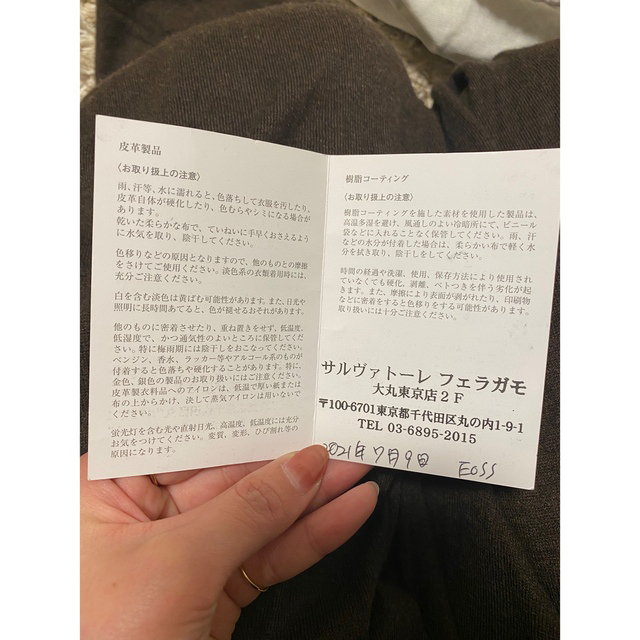 皮革製品
〈お取り扱上の注意〉
雨、汗等、水に濡れると、色落ちして衣服を汚したり、
皮革自体が硬化したり、色むらやシミになる場合が
あります。
乾いた柔らかな布で、ていねいに手早くおさえるよう
に水気を取り、陰干してください。
色移りなどの原因となりますので、他のものとの摩擦
をさけてご使用ください。淡色系の衣類着用時には、
充分ご注意ください。
白を含む淡色は黄ばむ可能性があります。また、日光や
照明に長時間あてると、色が褪せるおそれがあります。
他のものに密着させたり、重ね置きをせず、低温度、
低湿度で、かつ通気性のよいところに保管してください。
特に梅雨期には陰干しをおこなってください。
ベンジン、香水、ラッカー等やアルコール系のものが
付着すると色落ちや硬化することがあります。特に、
金色、銀色の製品のお取り扱いにはご注意ください。
皮革製衣料品へのアイロンは、低温で厚い紙または
布の上からかけ、決して蒸気アイロンは用いないで
ください。
蛍光灯を含む光や直射日光、高温度、低温度には充分
お気をつけてください。変質、変形、ひび割れ等の
原因になります。
樹脂コーティング
〈お取り扱上の注意〉
樹脂コーティングを施した素材を使用した製品は、
高温多湿を避け、風通しのよい冷暗所にて、ビニール
袋などに入れることなく保管してください。雨、汗
などの水分が付着した場合は、柔らかい布で軽く水
分を拭き取り、陰干しをしてください。
時間の経過や洗濯、使用、保存方法により使用され
ていなくても硬化、剥離、ベトつきを伴う劣化が起
きます。また、摩擦により表面が剥がれたり、印刷物
などに密着をすると色移りをする可能性があります。
取り扱いには十分ご注意ください。
サルヴァトーレ フェラガモ
大丸東京店2F
〒100-6701東京都千代田区丸の内1-9-1
TEL 03-6895-2015
2021年7月9日 EOSS